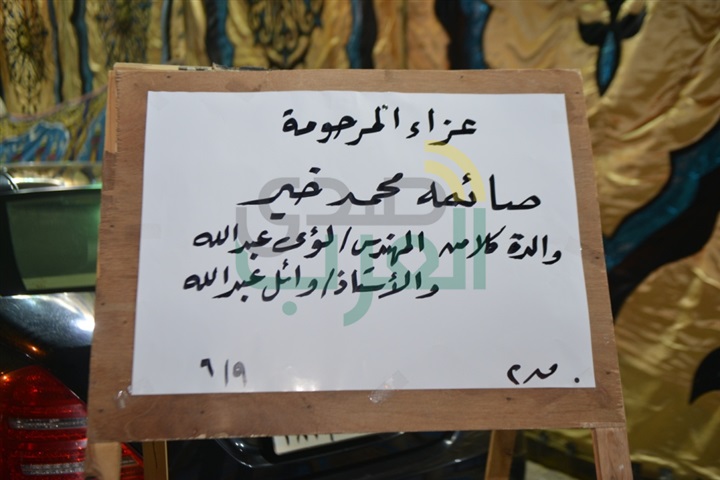 عزاء المرحومة
صائمه محمد خير
والدة كلا من المهندس/لؤى عبدالله
والأستاذ/وائل عبدالله
٦/٩
صدى
العرب